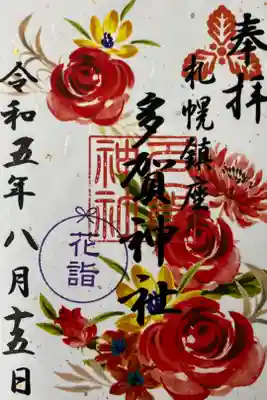 奉拝
札幌鎮座
多賀神社
多賀神社
花詣
令和五年八月十五日